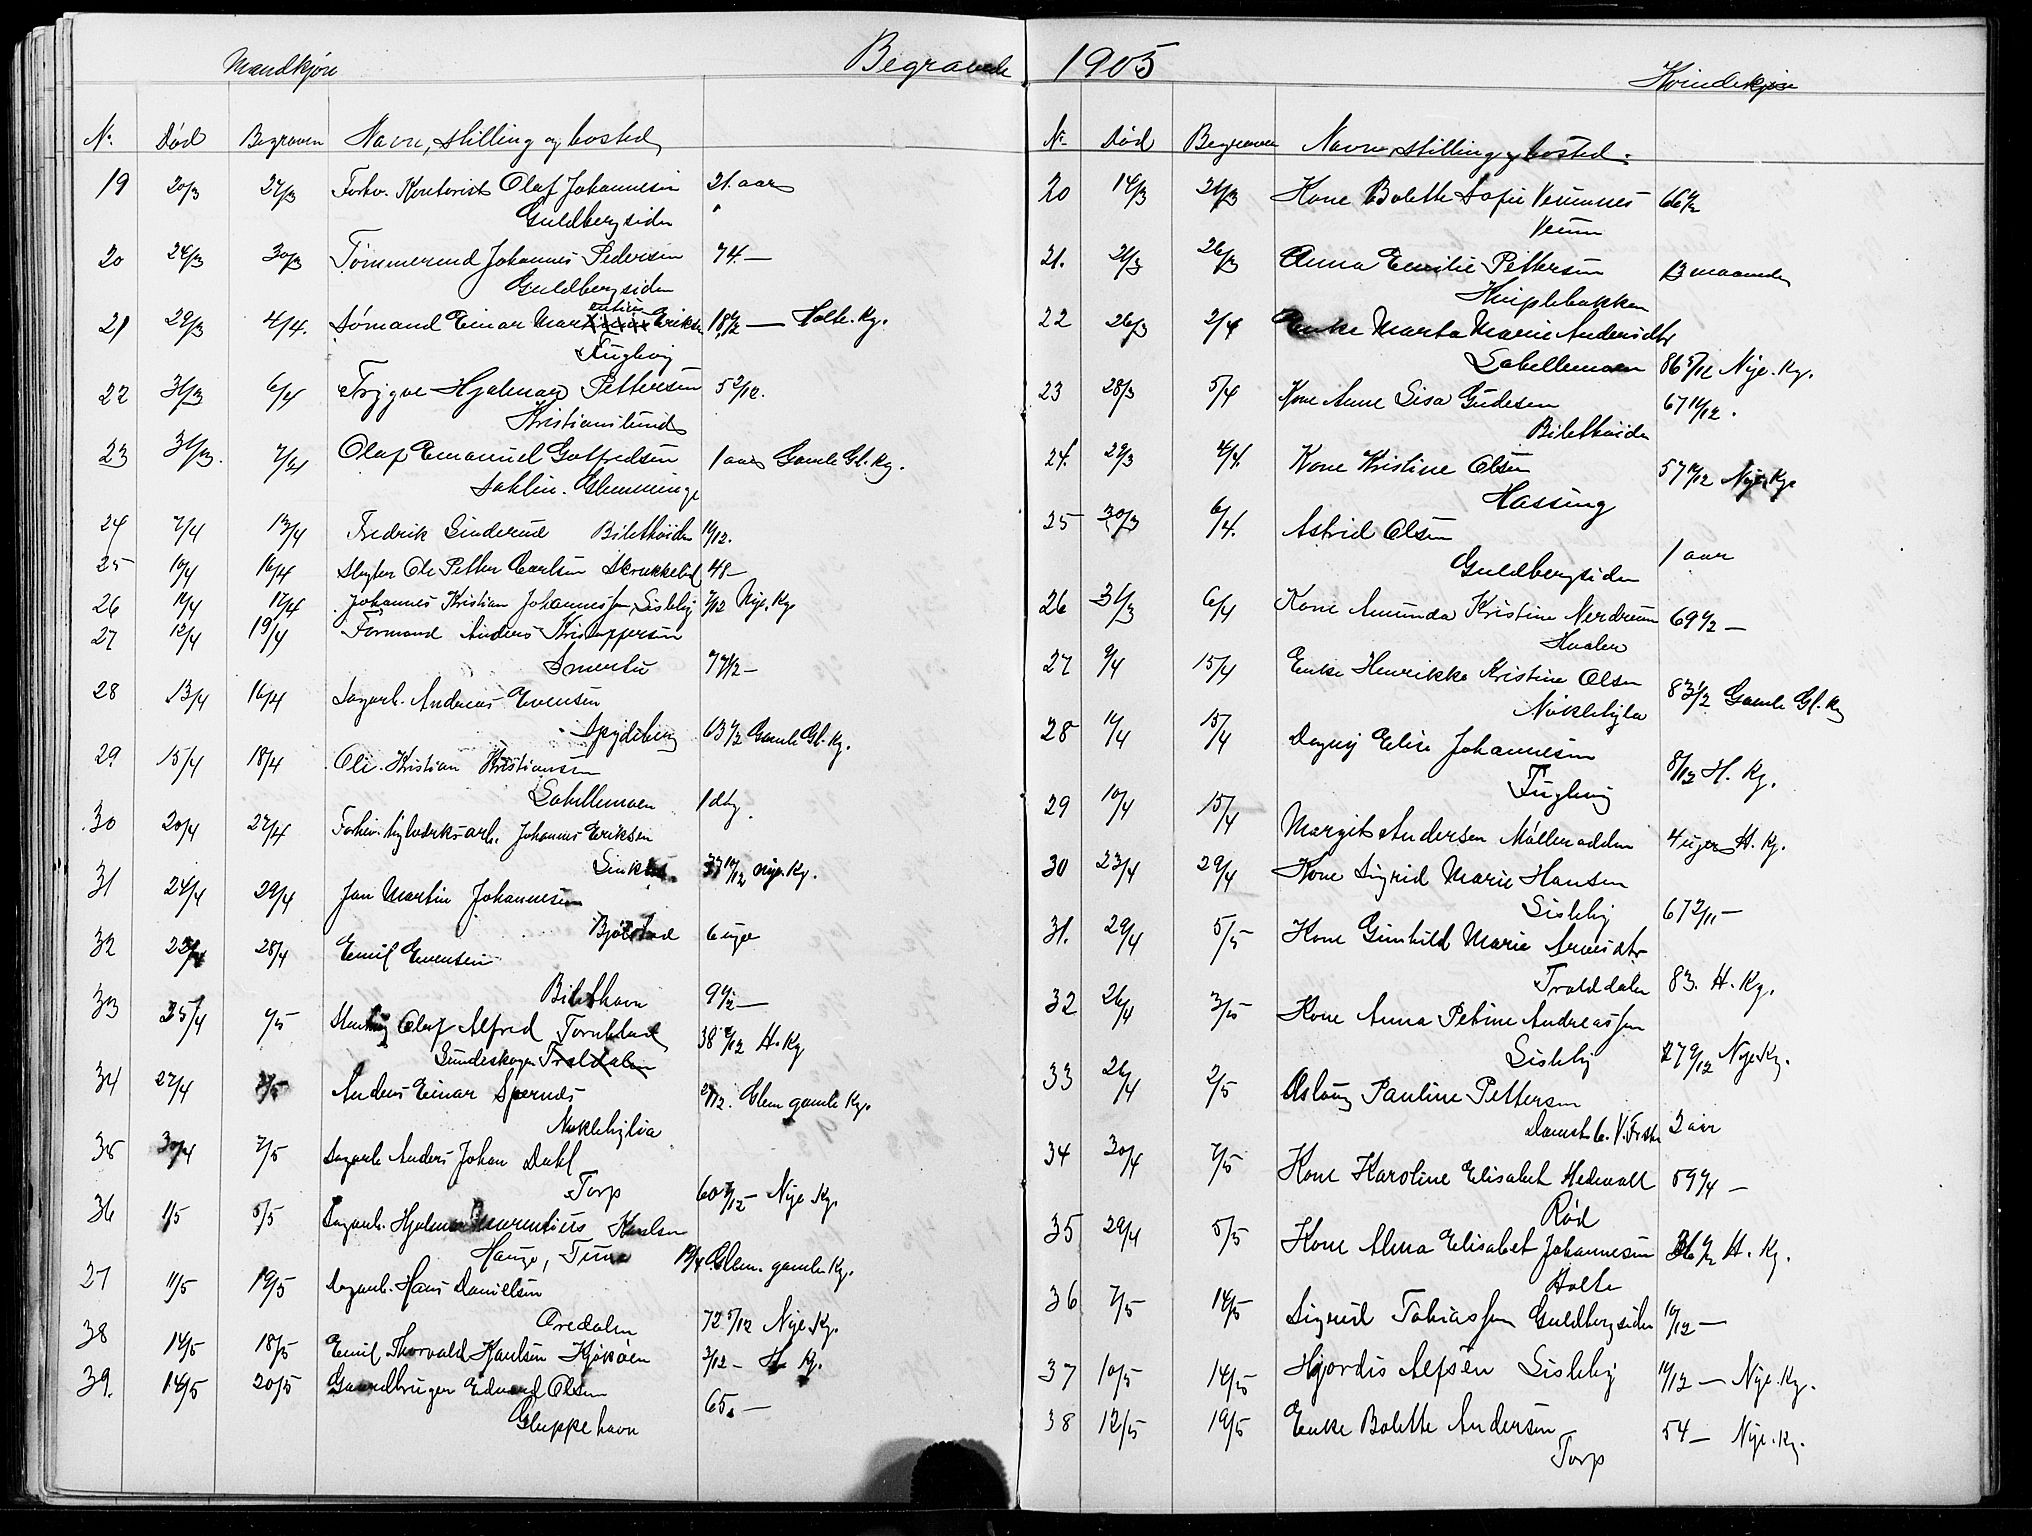 Mandkjøn
Begravede
No Død Begraven Navn, stilling og bosted
19 20/3 27/3 Forhv. Kontorist Olaf Johannesen 21. aar
Guldbergsiden
20 24/3 30/3 Tømmermd Johannes Pedersen 74 —
Guldbergsiden
21 29/3 4/4. Sømand Einar Eriksen 18 1/2 — Holte. Kg.
Fuglevig
22 31/3 6/4 Trygve Hjalmar Pettersen 5 2/12.
Kristianslund
23 31/3. 7/4 Olaf Emanuel Gotfredsen 1 aar Gamle Gl. Kg.
Dahlin. Glemminge
24 7/4 13/4 Fredrik Binderud Bilethöiden 11/12.
25 10/4 16/4 Slagter Ole Petter Carlsen Skrukkelid 48 —
26 12/4 17/4 Johannes Kristian Johannessen, Lisleby 7/12 Nye. Kg.
27 12/4 19/4 Formand Anders Kristoffersen
Smertu 77 1/2 —
28 13/4 16/4 Sagarb. Andreas Evensen
Spydeberg 63 1/2 Gamle Gl. Kg.
29 15/4 18/4 Ole Kristian Kristiansen
Labellemoen 1 dag.
30 20/4 27/4 Forhv. teglverksarb. Johannes Eriksen
Nye. Kg.
31 24/4 29/4 Jan Martin Johannesen
Bjølstad 6 uger
32 22/4 28/4 Emil Evensen
Bilethavn 9 1/2 —
33 25/4 1/5 Olaf Alfred Tornblad 38 H. Kg
Gundeskogen Traldalen
34 27/4 Anders Einar Spernes 2/12. Glem gamle Kg.
Nøklebylia
35 30/4 7/5 Sagarb Anders Johan Dahl
Torp 60 Nye Kg.
36 1/5 5/5 Sagarb. Hjalmar Laurentius Karlsen
Hauge, Tune 19/4 Glem. gamle Kg.
37 11/5 19/5 Sagarb. Hans Danielsen
Øredalen 72 5/12 Nye. Kg.
38 14/5 18/5 Emil Thorvald Karlsen Kjøkøen 3/12 — H Kg.
39. 14/5 20/5 Gaardbruger Edvard Olsen 65. —
Gluppe havn
1905
Kvindekjøn
No Død Begraven Navn, stilling og bosted.
20 14/3 21/3 Kone Bolette Sofie Veumnes 66 1/2
Veum
21. 21/3 26/3 Anna Emilie Pettersen 13 maaneder
Kniplebakken
22 26/3 2/4 Enke Marta Marie Andersdtr
Labellemoen 86 5/12 Nye. Kg.
23 28/3 5/4 Kone Anne Lisa Gudesen 67 11/12.
Bilethöiden
24. 29/3 4/4. Kone Kristine Olsen 57 Nye. Kg.
Hassing
25 30/3 6/4. Astrid Olsen 1 aar
Guldbergsiden
26 31/3 6/4 Kone Amunda Kristine Nerdrum 69 1/2 —
Hvaler
27 9/4 15/4 Enke Henrikke Kristine Olsen
Nøklebylia 83 1/2 Gamle Gl. Kg
28 11/4 15/4 Dagny Elise Johannesen
Fuglevig 8/12 H. Kg.
29 10/4 15/4 Margit Andersen Mölleroddin 4 uger H. Kg.
30 23/4 29/4 Kone Sigrid Marie Hansen
Lisleby 67 2/11 —
31. 29/4 5/5 Kone Gunhild Marie Arnesdtr
Tralddalen 83. H. Kg.
32 26/4 3/5 Kone Anna Petrine Andreassen
Lisleby 27 9/12 Nye Kg.
33 26/4 2/5 Aslaug Pauline Pettersen
3 aar
34 30/4 7/5 Kone Karoline Elisabet Hedevall 59 1/4 —
Rød
35 29/4 5/5 Kone Alma Elisabet Johannesen 36 1/2 H. Kg.
Holte
36 7/5 14/5 Sigrid Tobiassen Guldbergsiden 10/12 —
37 10/5 14/5 Hjordis Alfsen Lisleby 11/12 — Nye. Kg.
38 12/5 19/5 Enke Bolette Andersen 54 — Nye. Kg.
Torp